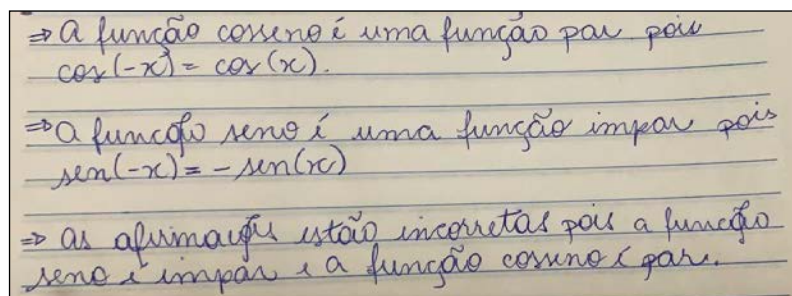 ⇒ A função cosseno é uma função par pois
cos(-x) = cos(x).
⇒ A função seno é uma função impar pois
sen(-x) = - sen(x)
⇒ as afirmações estão incorretas pois a função
seno é impar e a função cosseno é par.